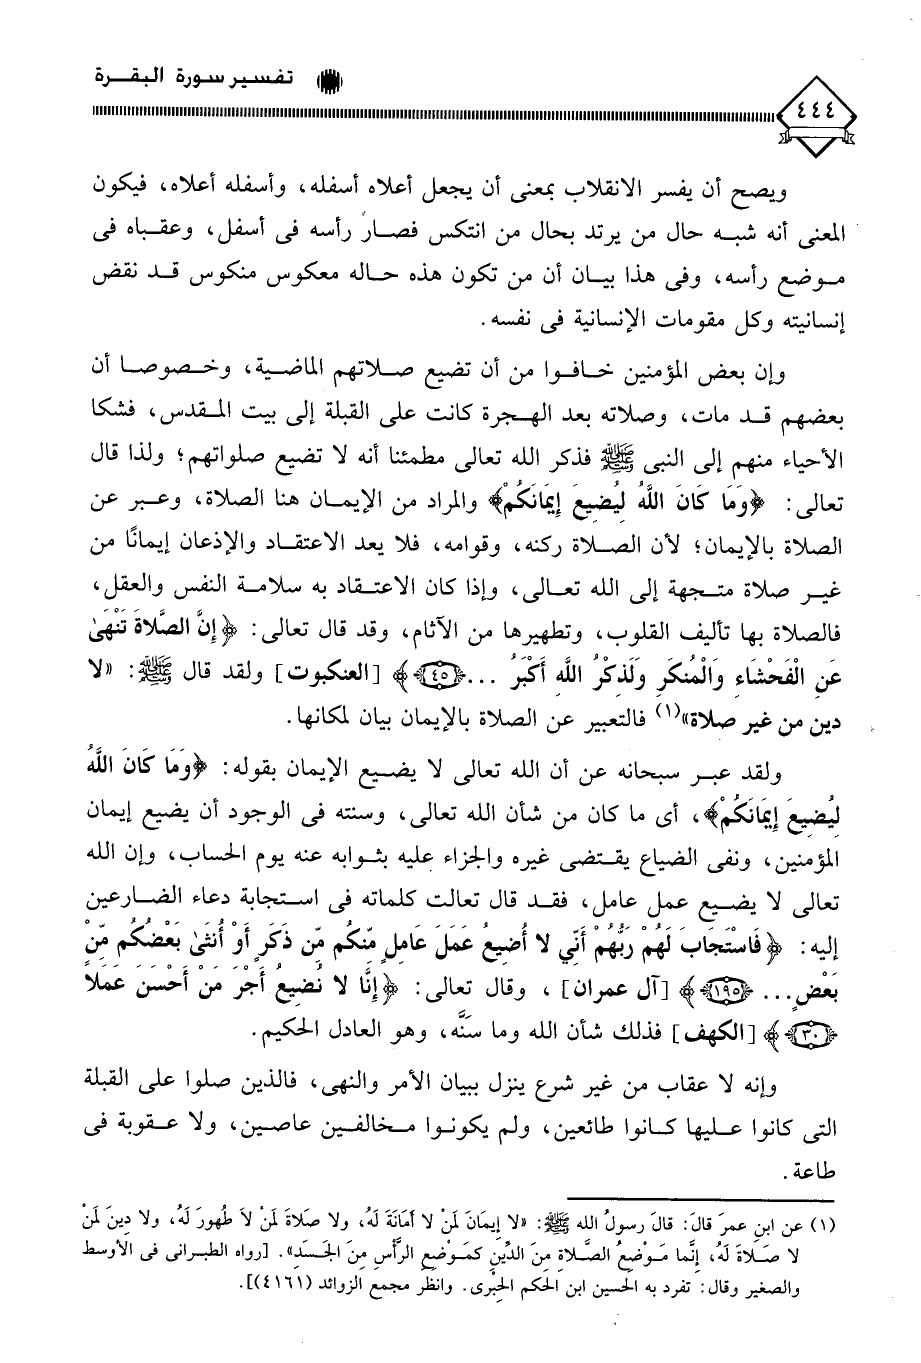 تفسير سورة البقرة
٤٤٤
ويصح أن يفسر الانقلاب بمعنى أن يجعل أعلاه أسفله، وأسفله أعلاه، فيكون
المعنى أنه شبه حال من يرتد بحال من انتكس فصار رأسه فى أسفل، وعقباه فى
موضع رأسه، وفى هذا بيان أن من تكون هذه حاله معكوس منكوس قد نقض
إنسانيته وكل مقومات الإنسانية فى نفسه.
وإن بعض المؤمنين خافوا من أن تضيع صلاتهم الماضية، وخصوصا أن
بعضهم قد مات، وصلاته بعد الهجرة كانت على القبلة إلى بيت المقدس، فشكا
الأحياء منهم إلى النبى ﷺ فذكر الله تعالى مطمئنا أنه لا تضيع صلواتهم؛ ولذا قال
تعالى: ﴿وَمَا كَانَ اللَّهُ لِيُضِيعَ إِيمَانَكُمْ﴾ والمراد من الإيمان هنا الصلاة، وعبر عن
الصلاة بالإيمان؛ لأن الصلاة ركنه، وقوامه، فلا يعد الاعتقاد والإذعان إيمانًا من
غير صلاة متجهة إلى الله تعالى، وإذا كان الاعتقاد به سلامة النفس والعقل،
فالصلاة بها تأليف القلوب، وتطهيرها من الآثام، وقد قال تعالى: ﴿إِنَّ الصَّلاةَ تَنْهَىٰ
عَنِ الْفَحْشَاءِ وَالْمُنكَرِ وَلَذِكْرُ اللَّهِ أَكْبَرُ ...﴿٤٥﴾﴾ [العنكبوت] ولقد قال ﷺ: «لا
دين من غير صلاة»(١) فالتعبير عن الصلاة بالإيمان بيان لمكانها.
ولقد عبر سبحانه عن أن الله تعالى لا يضيع الإيمان بقوله: ﴿وَمَا كَانَ اللَّهُ
لِيُضِيعَ إِيمَانَكُمْ﴾، أى ما كان من شأن الله تعالى، وسنته فى الوجود أن يضيع إيمان
المؤمنين، ونفى الضياع يقتضى غيره والجزاء عليه بثوابه عنه يوم الحساب، وإن الله
تعالى لا يضيع عمل عامل، فقد قال تعالت كلماته فى استجابة دعاء الضارعين
إليه: ﴿فَاسْتَجَابَ لَهُمْ رَبُّهُمْ أَنِّي لا أُضِيعُ عَمَلَ عَامِلٍ مِّنكُم مِّن ذَكَرٍ أَوْ أُنثَىٰ بَعْضُكُم مِّنْ
بَعْضٍ... ﴿١٩٥﴾﴾ [آل عمران] ، وقال تعالى: ﴿إِنَّا لا نُضِيعُ أَجْرَ مَنْ أَحْسَنَ عَمَلاً
﴿٣٠﴾﴾ [الكهف] فذلك شأن الله وما سَنَّه، وهو العادل الحكيم.
وإنه لا عقاب من غير شرع ينزل ببيان الأمر والنهى، فالذين صلوا على القبلة
التى كانوا عليها كانوا طائعين، ولم يكونوا مخالفين عاصين، ولا عقوبة فى
طاعة.
(١) عن ابنِ عمرَ قالَ: قالَ رسولُ الله ﷺ: «لا إيمَانَ لمَنْ لا أمَانَةَ لَهُ، ولا صَلاةَ لمَنْ لاَ طُهورَ لَهُ، ولا دِينَ لمَنْ
لا صَلاَةَ لَهُ، إنَّما مَوْضِعُ الصَّلاةِ مِنَ الدِّينِ كَمَوْضِعِ الرَّأسِ مِنَ الجَسَدِ». [رواه الطبرانى فى الأوسط
والصغير وقال: تفرد به الحسين ابن الحكم الحِبَرى. وانظر مجمع الزوائد (٤١٦١)].